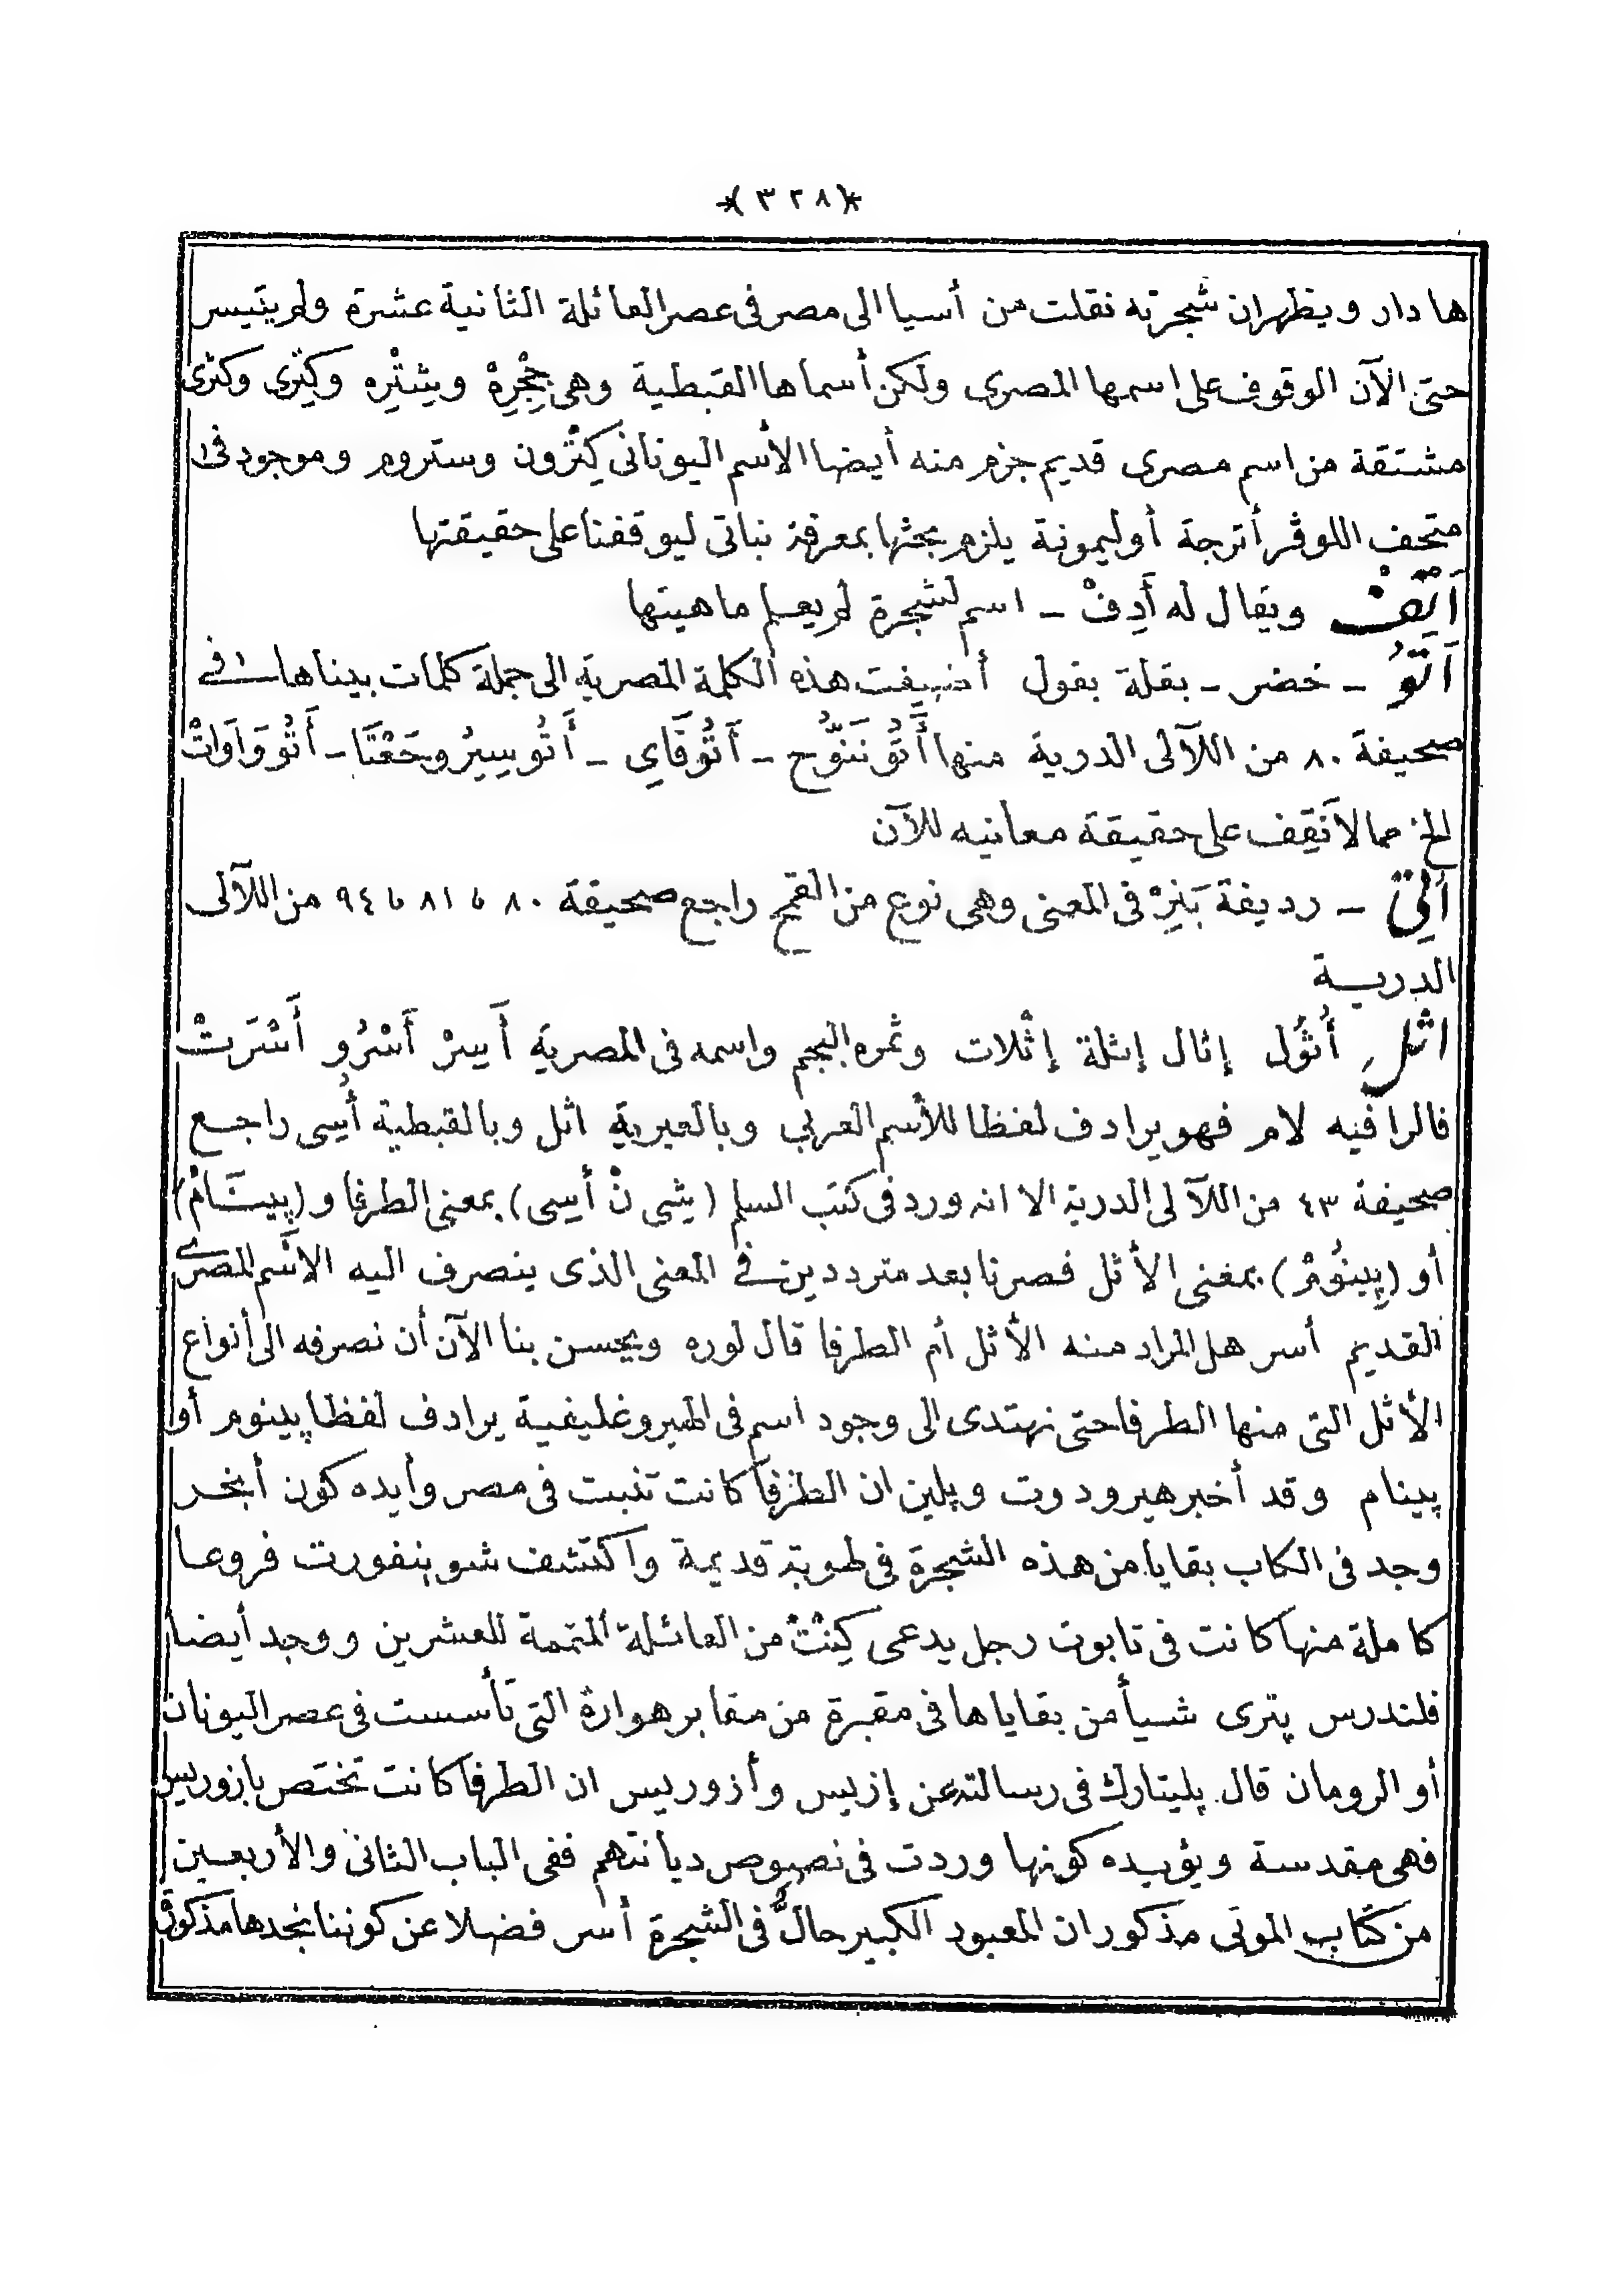 *(٣٢٨)*
هادار ويظهر ان شجرته نقلت من أسيا الى مصر فى عصر العائلة الثانية عشرة ولم يتيسر
حتى الآن الوقوف على اسمها المصرى ولكن أسماها القبطية وهى جِجْرِهْ ويِثتْرِه وكِتْرى وكتْرى
مشتقة من اسم مصرى قديم جزم منه أيضا الأسم اليونانى كِتْرُون وستروم وموجود فى
متحف اللوڤر أترجة أوليمونة يلزم بحثها بمعرفة نباتى ليوقفنا على حقيقتها
أَتِفْ ويقال له أَدِفْ ـ اسم لشجرة لم يعلم ماهيتها
أَتُو ـ خضر ـ بقلة بقول أضيفت هذه الكلمة المصرية الى جملة كلمات بيناها فى
صحيفة ٨٠ من اللآلى الدرية منها أَتُو نَنُّوح ـ أَتُو فَاىِ ـ أَتُو سِيِرُ وحَعْتَا ـ أَتُو وَاوَاتْ
الخ مما لا نَقِف على حقيقة معانيه للآن
أَتِى ـ رديفة بَنِرْ فى المعنى وهى نوع من القمح راجع صحيفة ٨٠ ٮا ٨١ ٮا ٩٤ من اللآلى
الدرية
اثل أُثُول إثال إثلة إثلات وثمره البجم واسمه فى المصرية أَسِرْ أَسْرُو أَسْرَتْ
فالرا فيه لام فهو يرادف لفظا للأسم العربى وبالعبرية اثل وبالقبطية أُسِى راجع
صحيفة ٤٣ من اللآلى الدرية الا انه ورد فى كتب السلم (يثى نْ أُسِى) بمعنى الطرفا و (پِينَامْ)
أو (پِينُومْ) بمعنى الأثل فصرنا بعد مترددين فى المعنى الذى ينصرف اليه الاسم المصرى
القديم أسر هل المراد منه الأثل أم الطرفا قال لوره ويحسن بنا الآن أن نصرفه الى أنواع
الأثل التى منها الطرفا حتى نهتدى الى وجود اسم فى الهيروغليفية يرادف لفظا پينوم أو
پينام وقد أخبر هيرودوت وپلين ان الطرفا كانت تنبت فى مصر وأيده كون أنجر
وجد فى الكاب بقايا من هذه الشجرة فى طوبة قديمة واكتشف شوينفورت فروعا
كاملة منها كانت فى تابوت رجل يدعى كِنْتْ من العائلة المتممة للعشرين ووجد أيضا
فلندرس پترى شيأ من بقاياها فى مقبرة من مقابر هوارة التى تأسست فى عصر اليونان
أو الرومان قال پليتارك فى رسالته عن إزيس وأزوريس ان الطرفا كانت تختص بازوريس
فهى مقدسة ويؤيده كونها وردت فى نصوص ديانتهم ففى الباب الثانى والأربعين
من كتاب الموتى مذكور ان المعبود الكبير حالٌّ فى الشجرة أسر فضلا عن كوننا نجدها مذكورة